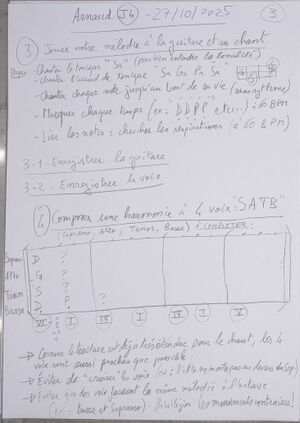 Arnaud J4 - 27/10/2025 3
3 Jouer votre mélodie à la guitare et au chant
- Chanter la tonique "Sa" (pour bien entendre la tonalité)
- chanter l'accord de tonique "Sa Ga Pa Sa"
- chanter chaque note jusqu'au bout de sa vie (sans rythme)
- Marquer chaque temps (ex: "DDPP" etc...) à 60 BPM
- Lier les notes : chercher les respirations (à 60 BPM)
3-1- Enregistrer la guitare
3-2- Enregistrer la voix
4 Composer une harmonie à 4 voix : "SATB"
(Soprano, Alto, Tenor, Basse) à COMPLETER:
Soprano D ?
Alto G ?
Tenor S ?
Basse P ? ?
VI I IV I VI I
→ Comme la tessiture est déjà très étendue pour le chant, les 4
voix sont aussi proches que possible
→ Éviter de "croiser" les voix
→ Éviter que des voix fassent la même mélodie à l'octave
(ex: Basse et Soprano). Privilégier les mouvements contraires!